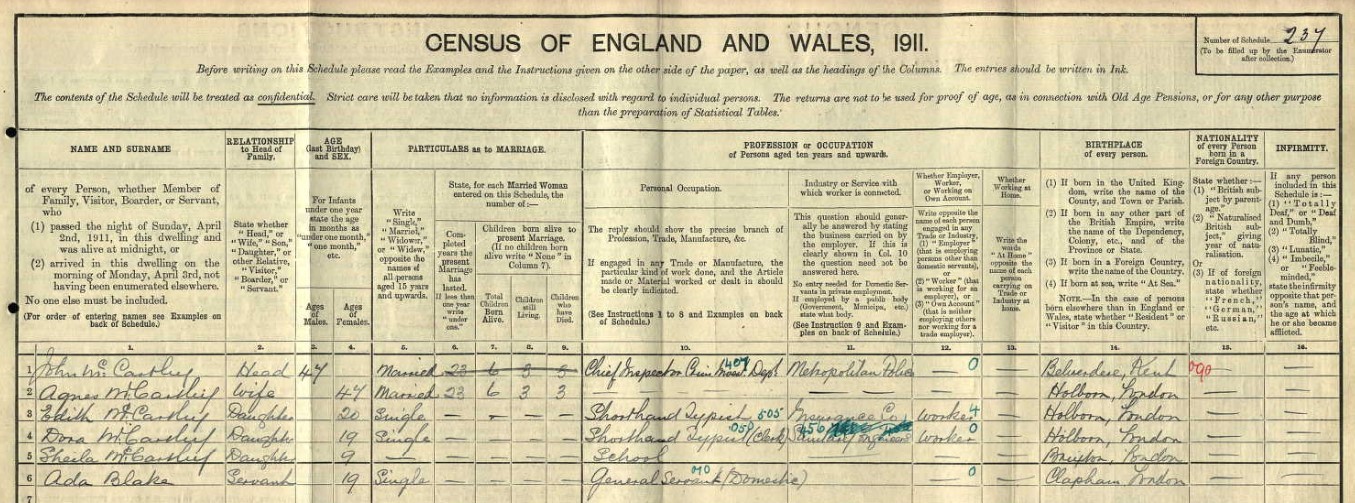 CENSUS OF ENGLAND AND WALES, 1911.
Number of Schedule 237
(To be filled up by the Enumerator
after collection.)
Before writing on this Schedule please read the Examples and the Instructions given on the other side of the paper, as well as the headings of the Columns. The entries should be written in Ink.
The contents of the Schedule will be treated as confidential. Strict care will be taken that no information is disclosed with regard to individual persons. The returns are not to be used for proof of age, as in connection with Old Age Pensions, or for any other purpose
than the preparation of Statistical Tables.
NAME AND SURNAME
of every Person, whether Member of
Family, Visitor, Boarder, or Servant,
who
(1) passed the night of Sunday, April
2nd, 1911, in this dwelling and
was alive at midnight, or
(2) arrived in this dwelling on the
morning of Monday, April 3rd, not
having been enumerated elsewhere.
No one else must be included.
(For order of entering names see Examples on
back of Schedule.)
RELATIONSHIP
to Head of
Family.
State whether
"Head," or
"Wife," "Son,"
"Daughter," or
other Relative,
"Visitor,"
"Boarder," or
"Servant."
AGE
(last Birthday)
and SEX.
For Infants
under one year
state the age
in months as
"under one
month," "one
month,"
etc.
Ages
of
Males.
Ages
of
Females.
PARTICULARS as to MARRIAGE.
Write
"Single,"
"Married,"
"Widower,"
or "Widow,"
opposite the
names of
all persons
aged 15 years
and upwards.
State, for each Married Woman
entered on this Schedule, the
number of:—
Completed
years the
present
Marriage
has
lasted.
If less than
one year
write
"under
one."
Children born alive to
present Marriage.
(If no children born
alive write "None" in
Column 7).
Total
Children
Born
Alive.
Children
still
Living.
Children
who
have
Died.
PROFESSION or OCCUPATION
of Persons aged ten years and upwards.
Personal Occupation.
The reply should show the precise branch of
Profession, Trade, Manufacture, &c.
If engaged in any Trade or Manufacture, the
particular kind of work done, and the Article
made or Material worked or dealt in should
be clearly indicated.
(See Instructions 1 to 8 and Examples on back
of Schedule.)
Industry or Service with
which worker is connected.
This question should generally
be answered by stating
the business carried on by
the employer. If this is
clearly shown in Col. 10
the question need not be
answered here.
No entry needed for Domestic Servants
in private employment.
If employed by a public body
(Government, Municipal, etc.)
state what body.
(See Instruction 9 and Examples
on back of Schedule.)
Whether Employer,
Worker,
or Working on
Own Account.
Write opposite
the name of each person
engaged in any
Trade or Industry,
(1) "Employer"
(that is employing
persons other than
domestic servants),
or
(2) "Worker" (that
is working for an
employer), or
(3) "Own Account"
(that is neither
employing others
nor working for a
trade employer).
Whether
Working at
Home.
Write the
words
"At Home"
opposite the
name of each
person
carrying on
Trade or
Industry at
home.
BIRTHPLACE
of every person.
(1) If born in the United Kingdom,
write the name of the
County, and Town or Parish.
(2) If born in any other part of
the British Empire, write
the name of the Dependency,
Colony, etc., and of the
Province or State.
(3) If born in a Foreign Country,
write the name of the Country.
(4) If born at sea, write "At Sea."
NOTE.—In the case of persons
born elsewhere than in England or
Wales, state whether "Resident" or
"Visitor" in this Country.
NATIONALITY
of every Person
born in a
Foreign Country.
State whether:—
(1) "British subject
by parentage."
(2) "Naturalised
British subject,"
giving
year of naturalisation.
Or
(3) If of foreign
nationality,
state whether
"French,"
"German,"
"Russian,"
etc.
INFIRMITY.
If any person
included in this
Schedule is:—
(1) "Totally
Deaf," or "Deaf
and Dumb,"
(2) "Totally
Blind,"
(3) "Lunatic,"
(4) "Imbecile,"
or "Feeble-minded,"
state the infirmity
opposite that person's
name, and
the age at
which he or she became
afflicted.
1. 2. 3. 4. 5. 6. 7. 8. 9. 10. 11. 12. 13. 14. 15. 16.
1 John McCarthy Head 47 Married 23 6 3 3 Chief Inspector Crim Invest. Dept 407 Metropolitan Police — 0 — Belvedere, Kent 090 —
2 Agnes McCarthy Wife 47 Married 23 6 3 3 — — — — Holborn, London — —
3 Edith McCarthy Daughter 20 Single — — — — Shorthand Typist 505 Insurance Co Worker 4 — Holborn, London — —
4 Dora McCarthy Daughter 19 Single — — — — Shorthand Typist (Clerk) 050 456 Sanitary Engineers Worker 0 — Holborn, London — —
5 Sheila McCarthy Daughter 9 — — — — — School — — — Brixton, London — —
6 Ada Blake Servant 19 Single — — — — General Servant (Domestic) 010 — 0 — Clapham London — —
7